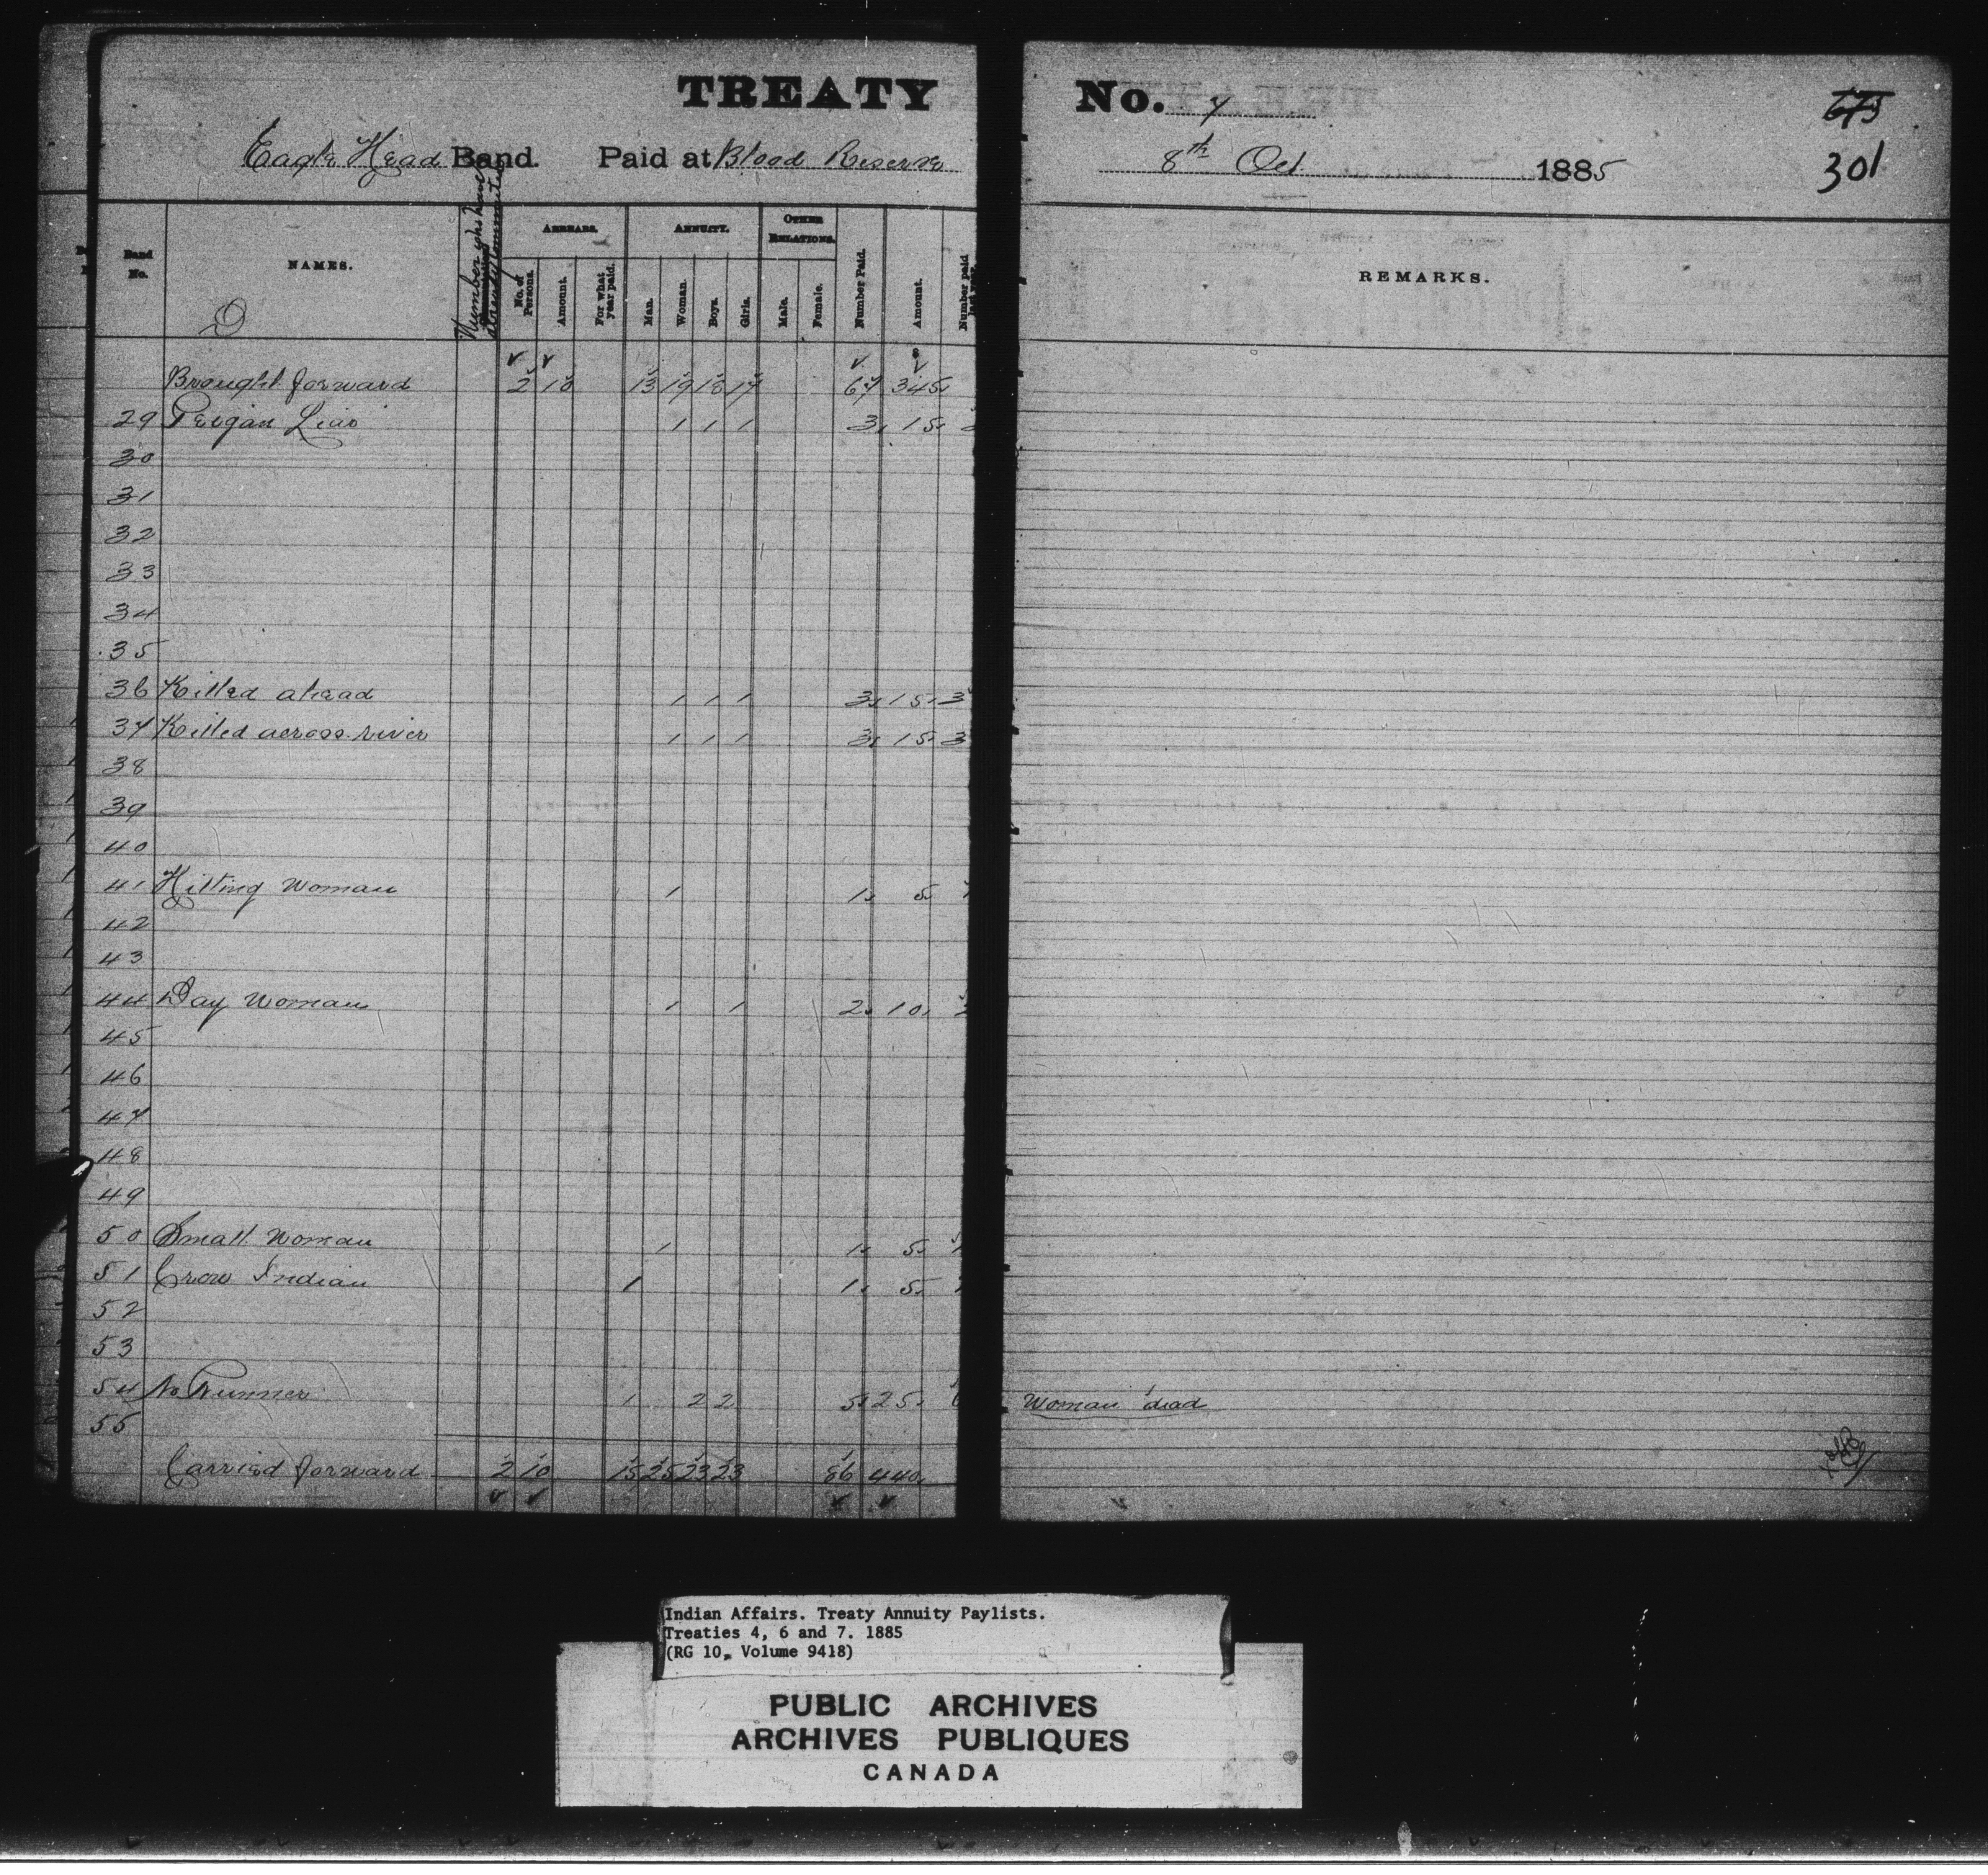 TREATY No. 7
675
Eagle Head Band. Paid at Blood Reserve 8th Oct 1885
301
Band No.
NAMES.
D
Number who have already commuted
ARREARS.
No. of Persons.
Amount.
For what year paid.
ANNUITY.
Man.
Woman.
Boys.
Girls.
OTHER RELATIONS.
Male.
Female.
Number Paid.
Amount.
Number paid last year.
REMARKS.
Brought forward 2 10 13 19 18 17 67 345
29 Peigan Liar 1 1 1 3 15
30
31
32
33
34
35
36 Killed ahead 1 1 1 3 15 3
37 Killed across river 1 1 1 3 15 3
38
39
40
41 Hitting Woman 1 1 5
42
43
44 Day Woman 1 1 2 10
45
46
47
48
49
50 Small Woman 1 1 5
51 Crow Indian 1 1 5
52
53
54 No Runner 1 2 2 5 25 6 Woman dead
55
Carried forward 2 10 15 25 23 23 86 440
Indian Affairs. Treaty Annuity Paylists.
Treaties 4, 6 and 7. 1885
(RG 10, Volume 9418)
PUBLIC ARCHIVES
ARCHIVES PUBLIQUES
CANADA